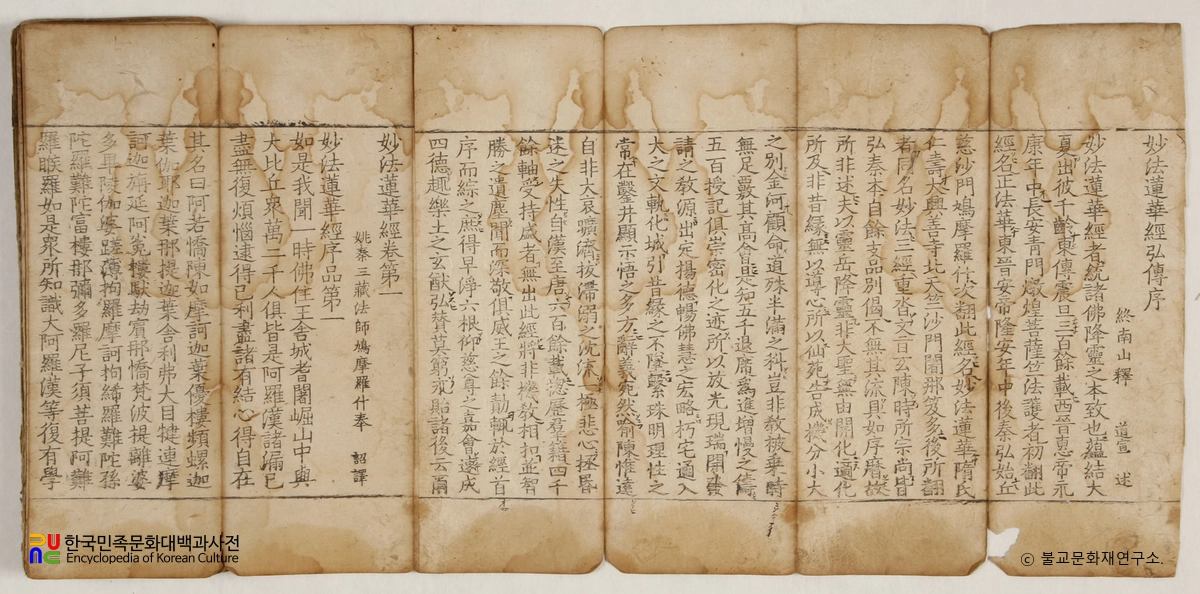 妙法蓮華經弘傳序
終南山釋 道宣 述
妙法蓮華經者統諸佛降靈之本致也蘊結大
夏出彼千齡東傳震旦三百餘載西晉惠帝永
康年中長安青門燉煌菩薩竺法護者初翻此
經名正法華東晉安帝隆安年中後秦弘始丘
慈沙門鳩摩羅什次翻此經名妙法蓮華隋氏
仁壽大興善寺北天竺沙門闍那笈多後所翻
者同名妙法三經重沓文旨互陳時所宗尚皆
弘秦本自餘支品別偈不無其流具如序曆故
所非述夫以靈岳降靈非大聖無由開化適化
所及非昔緣無以導心所以仙苑告成機分小大
之別金河顧命道殊半滿之科豈非教被乘時
無足覈其高會是知五千退席爲進增慢之儔
五百授記俱崇密化之迹所以放光現瑞開發
請之教源出定揚德暢佛慧之宏略朽宅通入
大之文軌化城引昔緣之不墜繫珠明理性之
常在鑿井顯示悟之多方辭義宛然喻陳惟遠
自非大哀曠濟拔滯溺之沈流一極悲心拯昏
迷之失性自漢至唐六百餘載總歷羣籍四千
餘軸受持盛者無出此經將非機教相扣並智
勝之遺塵聞而深敬俱威王之餘勣輒於經首
序而綜之庶得早淨六根仰慈尊之嘉會速成
四德趣樂土之玄猷弘贊莫窮永貽諸後云爾
妙法蓮華經卷第一
姚秦三藏法師鳩摩羅什奉 詔譯
妙法蓮華經序品第一
如是我聞一時佛住王舍城耆闍崛山中與
大比丘衆萬二千人俱皆是阿羅漢諸漏已
盡無復煩惱逮得己利盡諸有結心得自在
其名曰阿若憍陳如摩訶迦葉優樓頻螺迦
葉伽耶迦葉那提迦葉舍利弗大目犍連摩
訶迦旃延阿㝹樓馱劫賓那憍梵波提離婆
多畢陵伽婆蹉薄拘羅摩訶拘絺羅難陀孫
陀羅難陀富樓那彌多羅尼子須菩提阿難
羅睺羅如是衆所知識大阿羅漢等復有學
한국민족문화대백과사전
Encyclopedia of Korean Culture
ⓒ 불교문화재연구소.